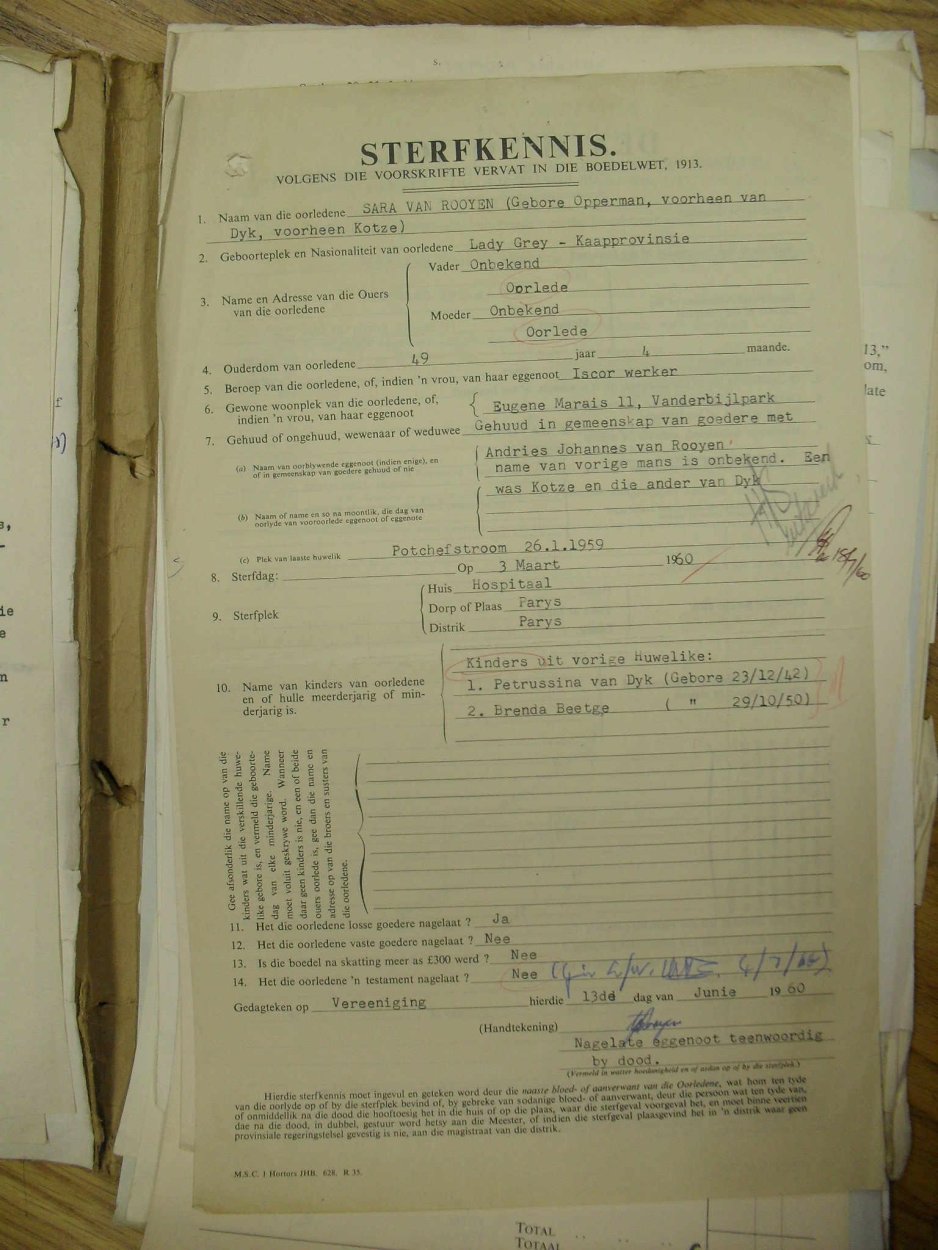 STERFKENNIS.
VOLGENS DIE VOORSKRIFTE VERVAT IN DIE BOEDELWET, 1913.
1. Naam van die oorledene SARA VAN ROOYEN (Gebore Opperman, voorheen van
Dyk, voorheen Kotze)
2. Geboorteplek en Nasionaliteit van oorledene Lady Grey - Kaapprovinsie
3. Name en Adresse van die Ouers
van die oorledene
Vader Onbekend
Oorlede
Moeder Onbekend
Oorlede
4. Ouderdom van oorledene 49 jaar 4 maande.
5. Beroep van die oorledene, of, indien 'n vrou, van haar eggenoot Iscor werker
6. Gewone woonplek van die oorledene, of,
indien 'n vrou, van haar eggenoot
Eugene Marais 11, Vanderbijlpark
7. Gehuud of ongehuud, wewenaar of weduwee Gehuud in gemeenskap van goedere met
(a) Naam van oorblywende eggenoot (indien enige), en
of in gemeenskap van goedere gehuud of nie
Andries Johannes van Rooyen
name van vorige mans is onbekend. Een
was Kotze en die ander van Dyk
(b) Naam of name en so na moontlik, die dag van
oorlyde van vooroorlede eggenoot of eggenote
(c) Plek van laaste huwelik Potchefstroom 26.1.1959
8. Sterfdag: Op 3 Maart 1960
9. Sterfplek
Huis Hospitaal
Dorp of Plaas Parys
Distrik Parys
10. Name van kinders van oorledene
en of hulle meerderjarig of min-
derjarig is.
Kinders uit vorige Huwelike:
1. Petrussina van Dyk (Gebore 23/12/42)
2. Brenda Beetge ( " 29/10/50)
Gee afsonderlik die name op van die
kinders wat uit die verskillende huwe-
like gebore is, en vermeld die geboorte-
dag van elke minderjarige. Name
moet voluit geskrywe word. Wanneer
daar geen kinders is nie, en een of beide
ouers oorlede is, gee dan die name en
adresse op van die broers en susters van
die oorledene.
11. Het die oorledene losse goedere nagelaat ? Ja
12. Het die oorledene vaste goedere nagelaat ? Nee
13. Is die boedel na skatting meer as £300 werd ? Nee
14. Het die oorledene 'n testament nagelaat ? Nee
Gedagteken op Vereeniging hierdie 13de dag van Junie 1960
(Handtekening)
Nagelate eggenoot teenwoordig
by dood.
(Vermeld in watter hoedanigheid en of ardan op of by die sterfplek)
Hierdie sterfkennis moet ingevul en geteken word deur die naaste bloed- of aanverwant van die Oorledene, wat hom ten tyde
van die oorlyde op of by die sterfplek bevind of, by gebreke van sodanige bloed- of aanverwant, deur die persoon wat ten tyde van,
of onmiddelik na die dood die hooftoesig het in die huis of op die plaas, waar die sterfgeval voorgeval het, en moet binne veertien
dae na die dood, in dubbel, gestuur word hetsy aan die Meester, of indien die sterfgeval plaasgevind het in 'n distrik waar geen
provinsiale regeringstelsel gevestig is nie, aan die magistraat van die distrik.
M.S.C. 1 Hortors JHB. 628. R 35.
TOTAL
TOTAAL